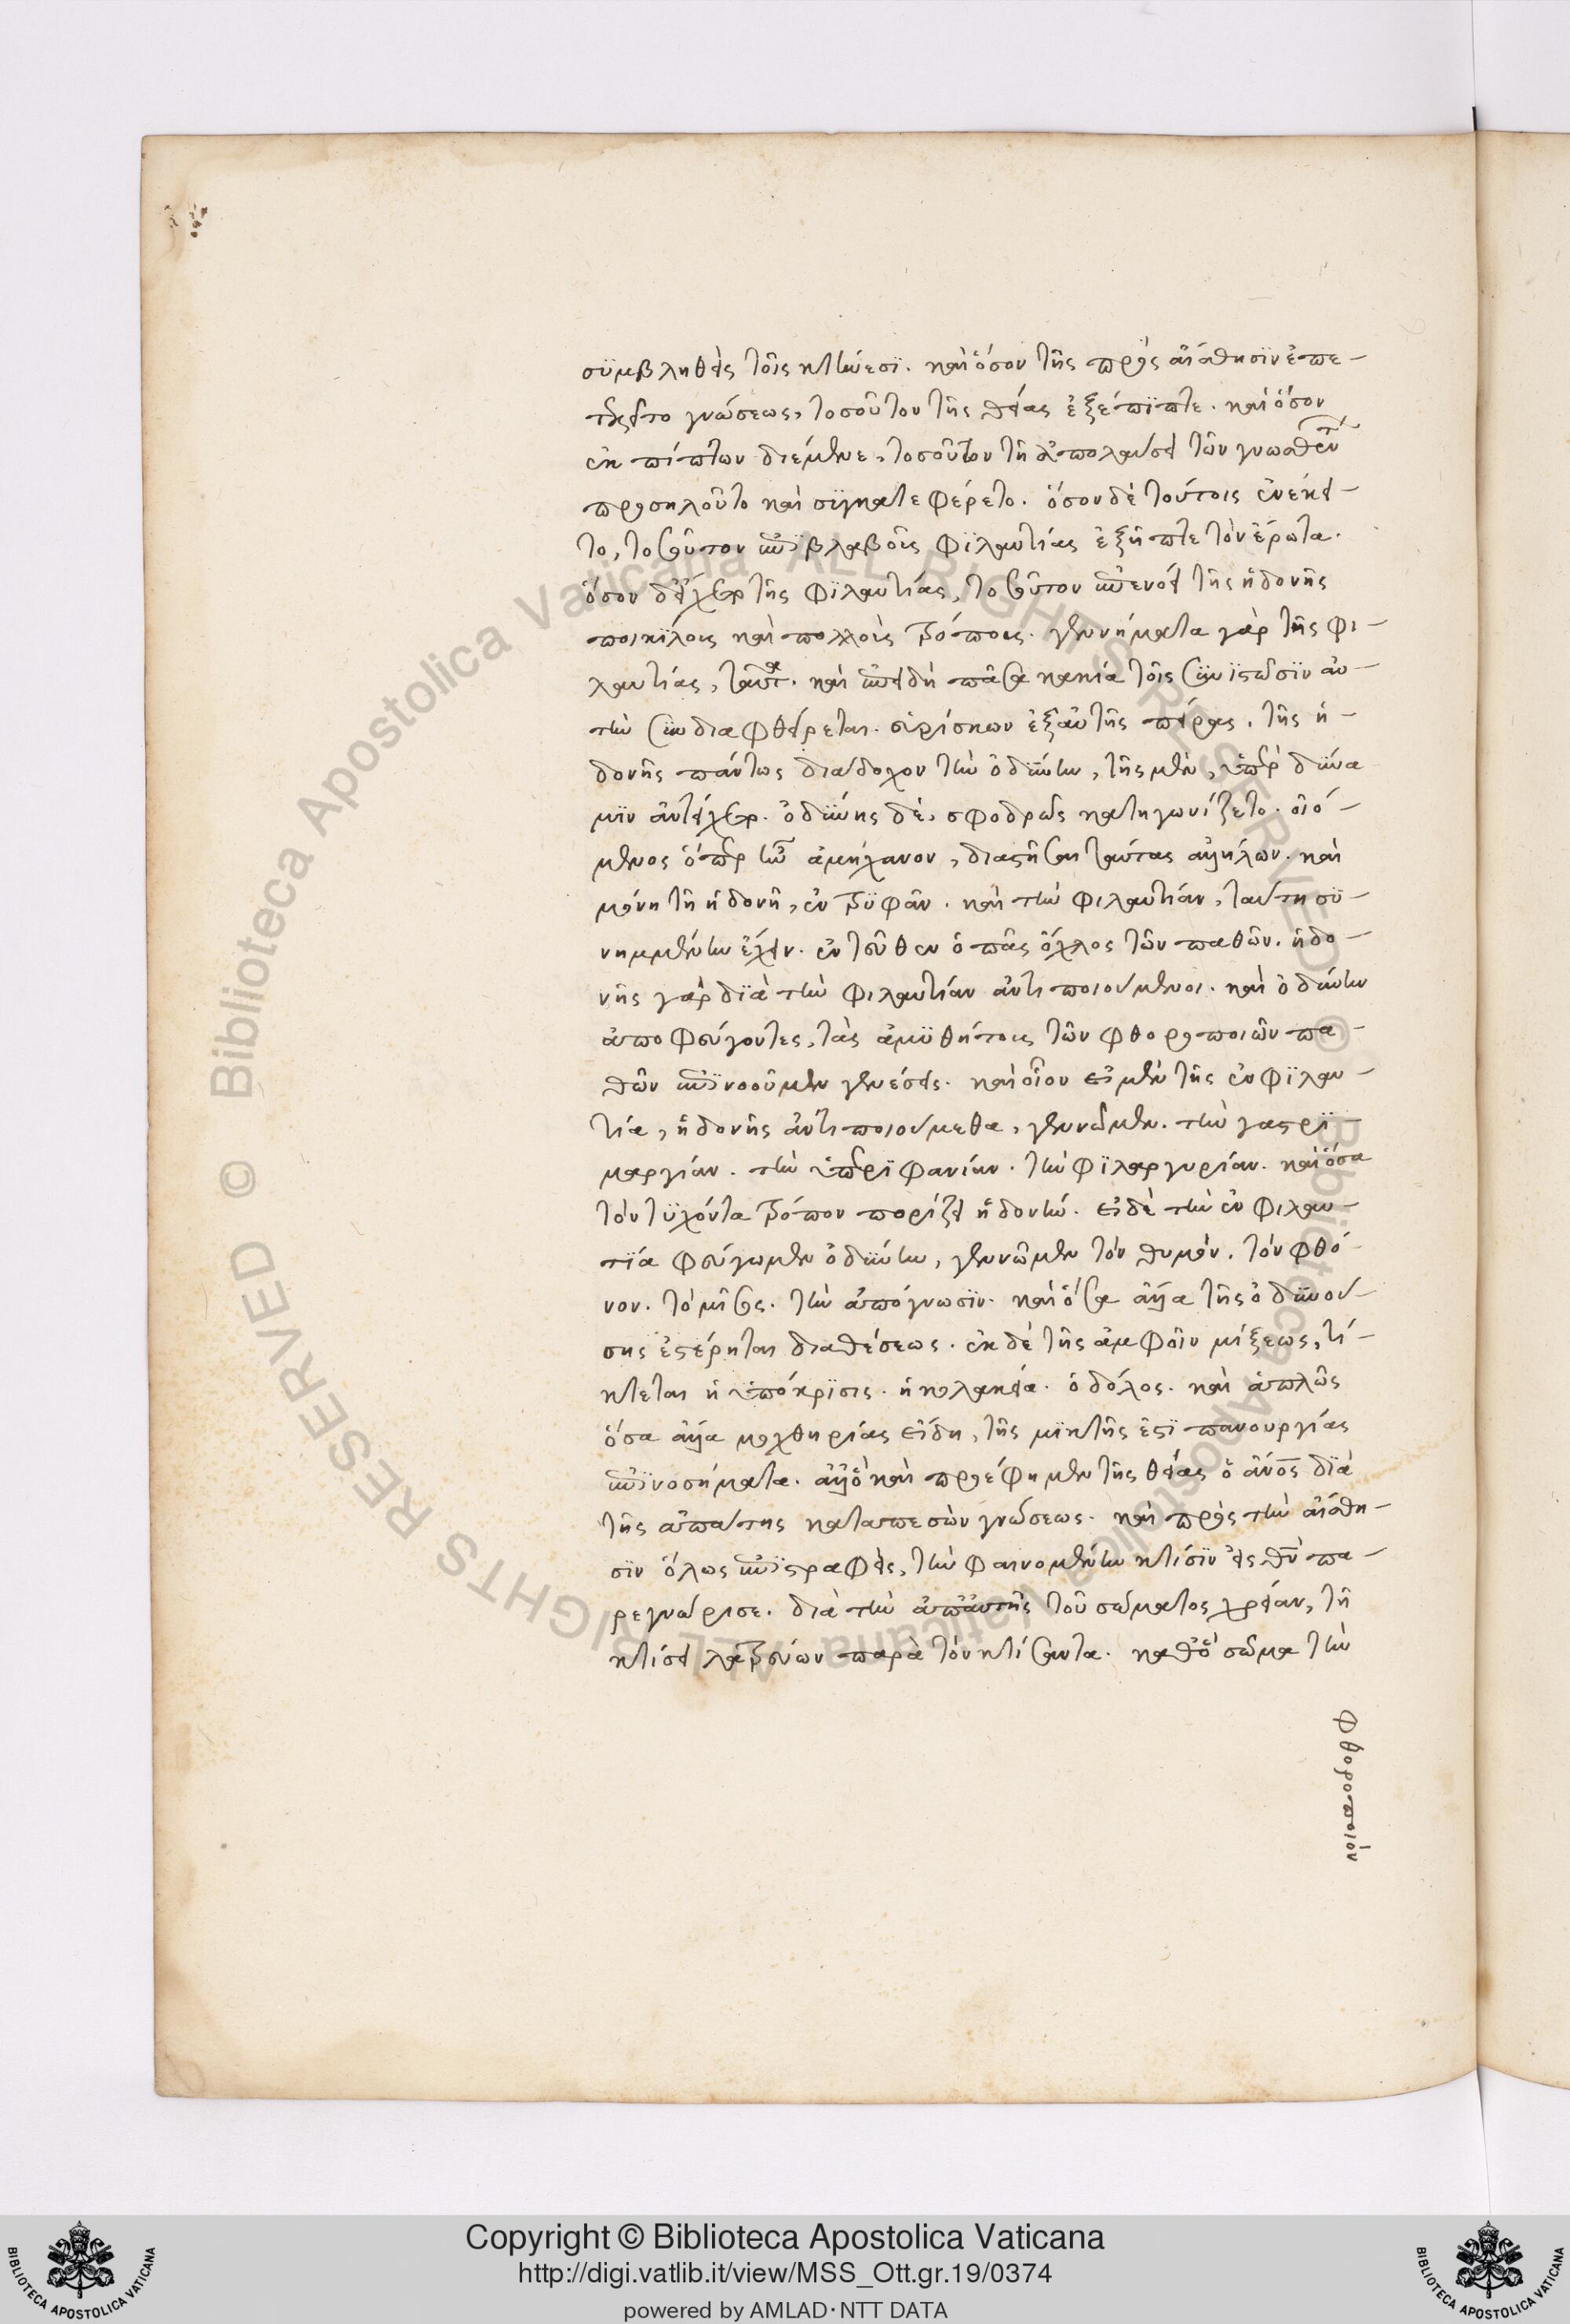 συμβληθεὶς τοῖς κτήνεσι. καὶ ὅσον τῆς πρὸς αἴσθησιν ἐπε-
τρέφετο γνώσεως, τοσοῦτον τῆς θείας ἐξέπιπτε. καὶ ὅσον
ἐκπίπτων διέμενε, τοσοῦτον τῇ ἀπολαύσει τῶν γνωσθέντων
προσηλοῦτο καὶ συγκατεφέρετο. ὅσον δὲ τούτοις ἐνέκει-
το, τοσοῦτον ἐπιβλαβοῦς φιλαυτίας ἐξῆπτε τὸν ἔρωτα.
ὅσον δ' εἴχετο τῆς φιλαυτίας, τοσοῦτον ἐπενόει τῆς ἡδονῆς
ποικίλους καὶ πολλοὺς τρόπους. γεννήματα γὰρ τῆς φι-
λαυτίας, ταῦτα. καὶ ἐπειδὴ πᾶσα κακία τοῖς συνιστῶσιν αὐ-
τὴν συνδιαφθείρεται. εὑρίσκων ἐξ αὐτῆς πείρας, τῆς ἡ-
δονῆς πάντως διάδοχον τὴν ὀδύνην, τῆς μὲν, ὑπὲρ δύνα
μιν ἀντείχετο. ὀδύνης δὲ, σφοδρῶς κατηγωνίζετο. οἰό-
μενος ὅπερ ἦν ἀμήχανον, διαστῆσαι ταύτας ἀλλήλων. καὶ
μόνῃ τῇ ἡδονῇ, ἐντρυφᾶν. καὶ τὴν φιλαυτίαν, ταύτῃ συ-
νημμένην ἔχειν. ἐντεῦθεν ὁ πᾶς ὄχλος τῶν παθῶν. ἡδο-
νῆς γὰρ διὰ τὴν φιλαυτίαν ἀντιποιούμενοι. καὶ ὀδύνην
ἀποφεύγοντες, τὰς ἀμυθήτους τῶν φθοροποιῶν πα-
θῶν ἐπινοοῦμεν γενέσεις. καὶ οἷον εἰ μὲν τῆς ἐν φιλαυ-
τίᾳ, ἡδονῆς ἀντιποιούμεθα, γεννῶμεν. τὴν γαστρι-
μαργίαν. τὴν ὑπερηφανίαν. τὴν φιλαργυρίαν. καὶ ὅσα
τὸν τυχόντα τρόπον πορίζει ἡδονήν. εἰ δὲ τὴν ἐν φιλαυ-
τίᾳ φεύγωμεν ὀδύνην, γεννῶμεν τὸν θυμόν. τὸν φθό-
νον. τὸ μῖσος. τὴν ἀπόγνωσιν. καὶ ὅσα ἄλλα τῆς ὀδυνού-
σης ἐστέρηται διαθέσεως. ἐκ δὲ τῆς ἀμφοῖν μίξεως, τί-
κτεται ἡ ὑπόκρισις. ἡ κολακεία. ὁ δόλος. καὶ ἁπλῶς
ὅσα ἄλλα μοχθηρίας εἴδη, τῆς μικτῆς ἐστι πανουργίας
ἐπινοήματα. ἀλλ' ὃ καὶ προέφημεν τῆς θείας ὁ ἄνος διὰ
τῆς ἀπάτης καταπεσὼν γνώσεως. καὶ πρὸς τὴν αἴσθη-
σιν ὅλως ἐπιστραφεὶς, τὴν φαινομένην κτίσιν εἰς θν πα-
ρεγνώρισε. διὰ τὴν ἀπ' αὐτῆς τοῦ σώματος χρείαν, τῇ
κτίσει λατρεύων παρὰ τὸν κτίσαντα. καθ' ὃ σῶμα τὴν
φθοροποιόν
Copyright © Biblioteca Apostolica Vaticana
http://digi.vatlib.it/view/MSS_Ott.gr.19/0374
powered by AMLAD·NTT DATA